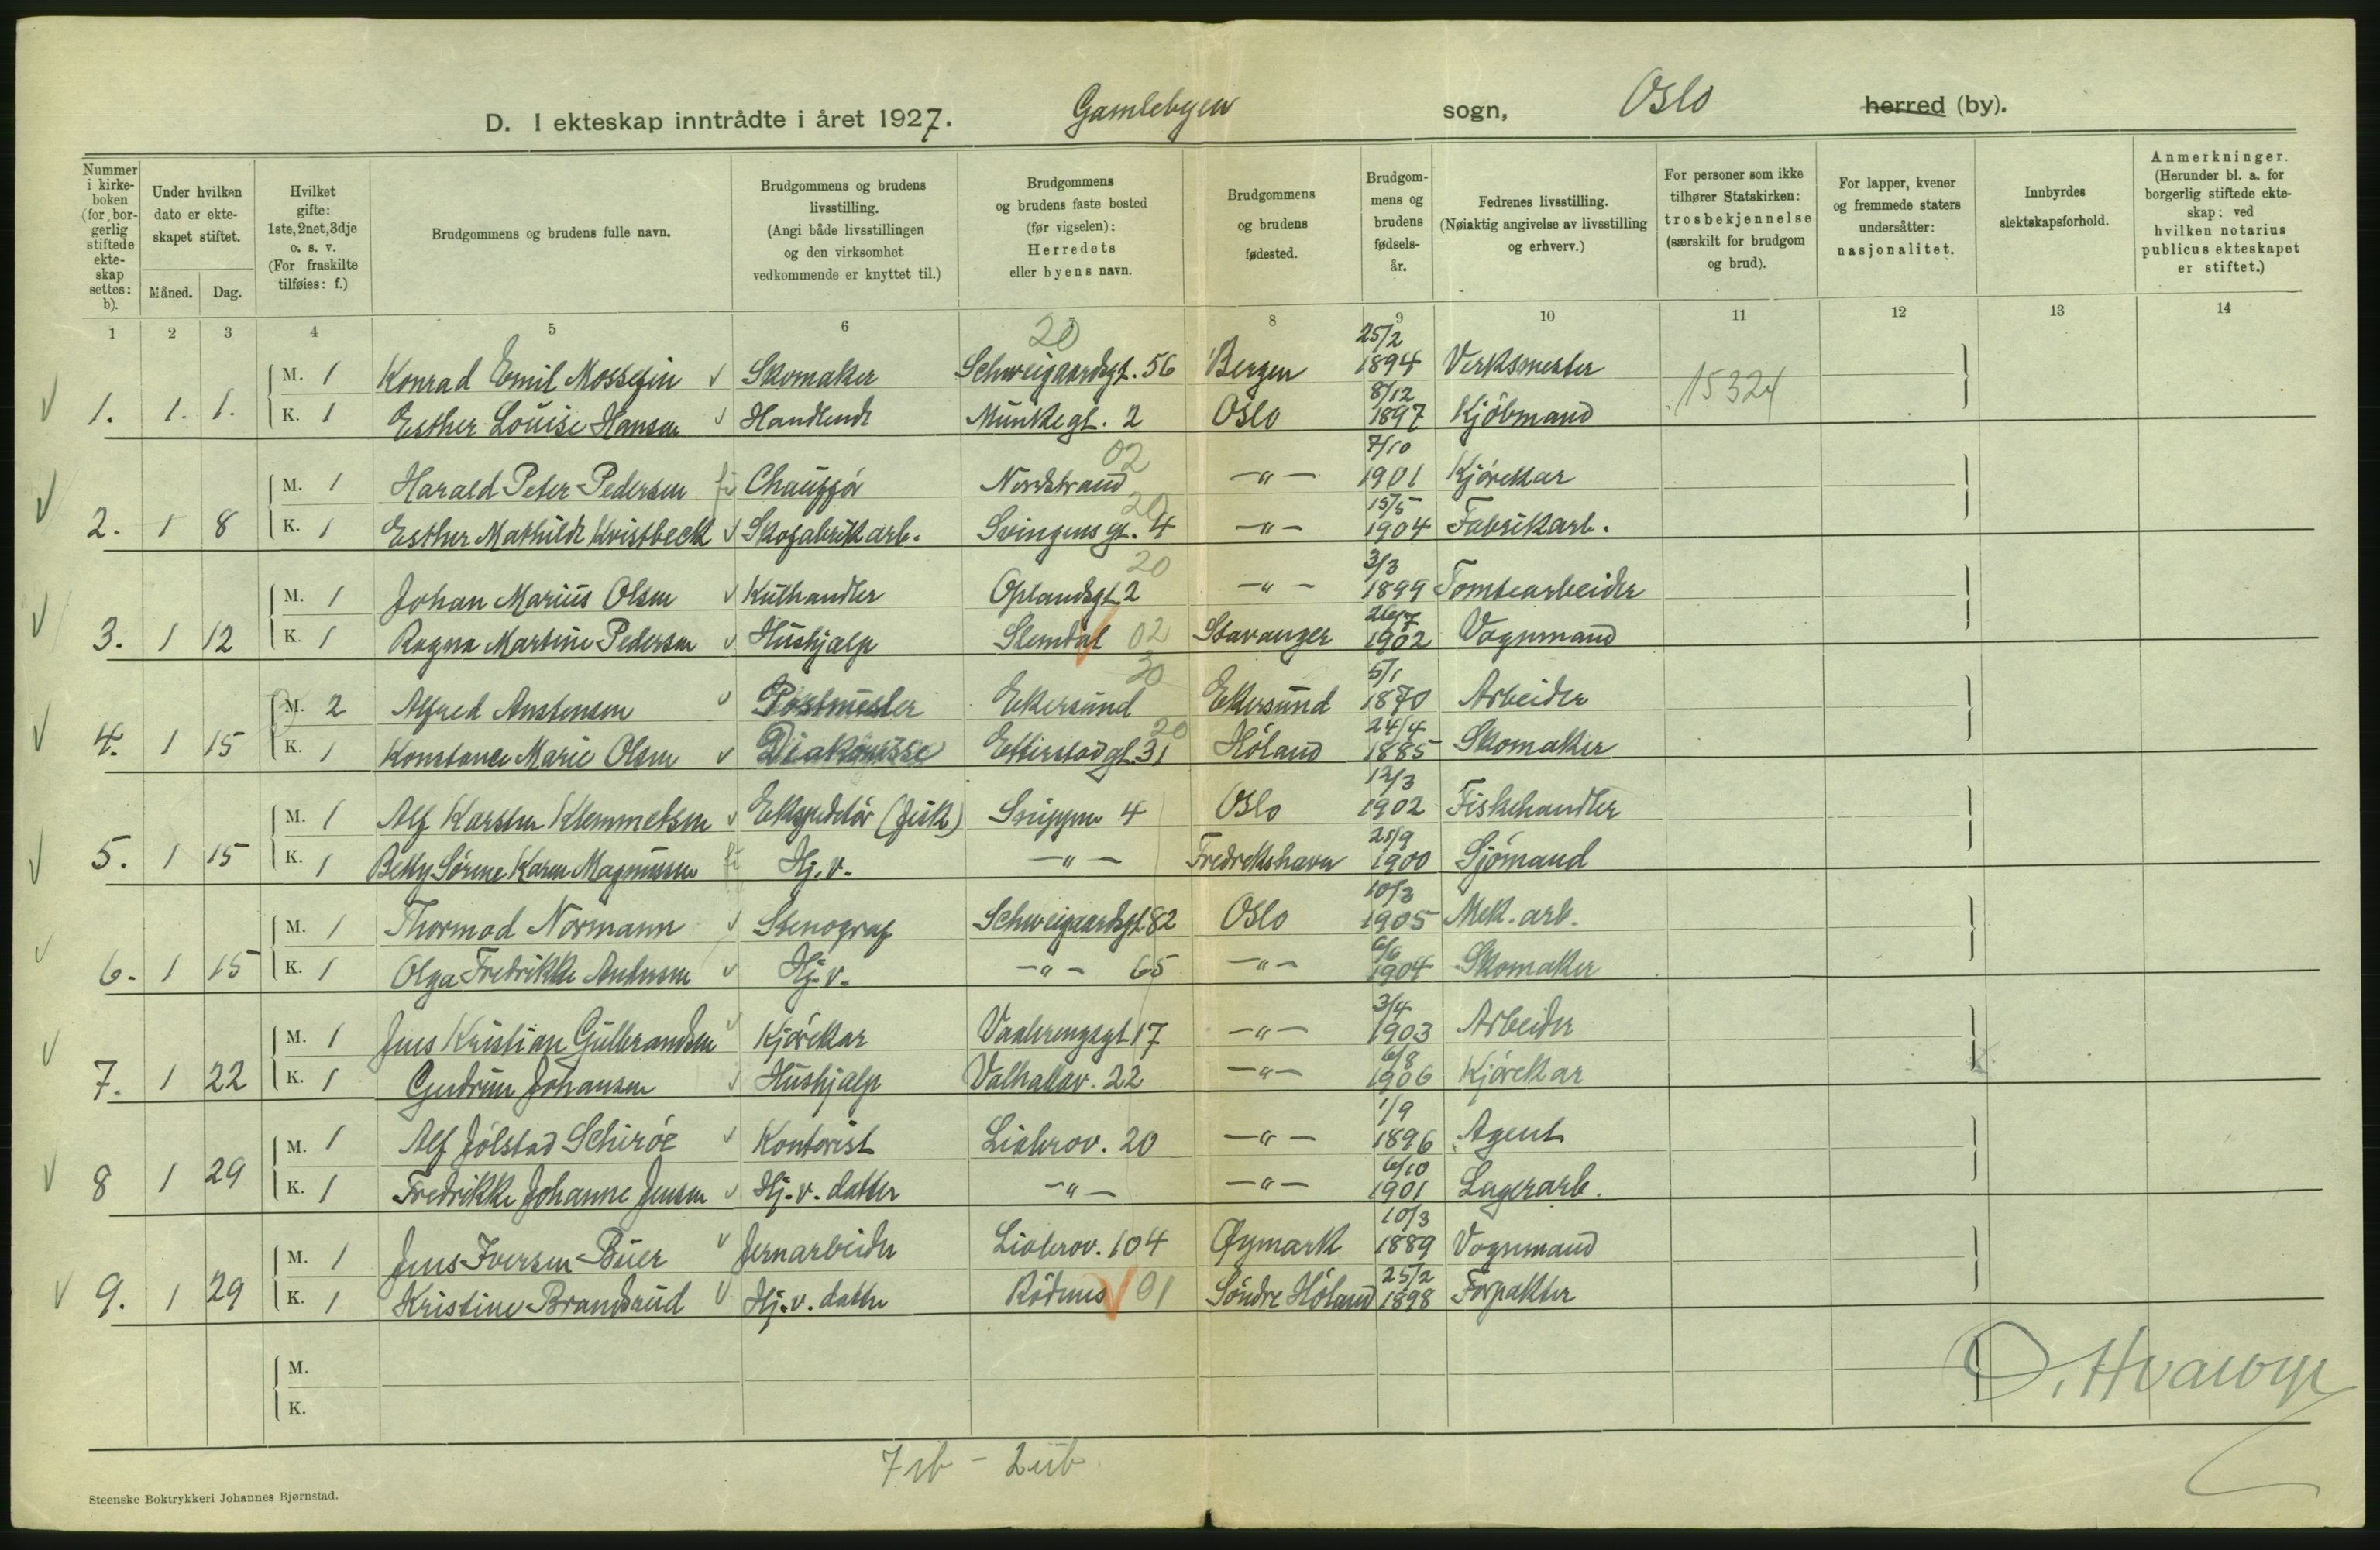 D. I ekteskap inntrådte i året 1927. Gamlebyen sogn, Oslo herred (by).
Nummer i kirkeboken (for borgerlig stiftede ekteskap settes: b).
Under hvilken dato er ekteskapet stiftet.
Måned. Dag.
Hvilket gifte: 1ste, 2net, 3dje o. s. v. (For fraskilte tilføies: f.)
Brudgommens og brudens fulle navn.
Brudgommens og brudens livsstilling. (Angi både livsstillingen og den virksomhet vedkommende er knyttet til.)
Brudgommens og brudens faste bosted (før vigselen): Herredets eller byens navn.
Brudgommens og brudens fødested.
Brudgommens og brudens fødsels-år.
Fedrenes livsstilling. (Nøiaktig angivelse av livsstilling og erhverv.)
For personer som ikke tilhører Statskirken: trosbekjennelse (særskilt for brudgom og brud).
For lapper, kvener og fremmede staters undersåtter: nasjonalitet.
Innbyrdes slektskapsforhold.
Anmerkninger. (Herunder bl. a. for borgerlig stiftede ekteskap: ved hvilken notarius publicus ekteskapet er stiftet.)
1 2 3 4 5 6 8 9 10 11 12 13 14
20 25/2
M. 1 Konrad Emil Mossefin Skomaker Schweigaardsgt. 56 Bergen 1894 Verksmester
15324
8/12
1. 1. 1. K. 1 Esther Louise Hansen Handlende Munkegt. 2 Oslo 1897 Kjöbmand
02 7/10
M. 1 Harald Peter Pedersen fi Chaufför Nordstrand -"- 1901 Kjörekar
20 15/5
2. 1 8 K. 1 Esther Mathilde Kvistbeck Skofabrikarb. Svingens gt. 4 -"- 1904 Fabrikarb.
20 3/3
M. 1 Johan Marius Olsen Kulhandler Oplandsgt. 2 -"- 1899 Tomtearbeider
26/7
3. 1 12 K. 1 Ragna Martine Pedersen Hushjælp Slemdal 02 Stavanger 1902 Vognmand
30 5/1
M. 2 Alfred Anstensen Postmester Ekersund Ekersund 1870 Arbeider
20 24/4
4. 1 15 K. 1 Konstance Marie Olsen Diakonisse Etterstadgt. 31 Höland 1885 Skomaker
12/3
M. 1 Alf Karsten Klemmetsen Ekspeditör (fisk) Snippen 4 Oslo 1902 Fiskehandler
25/9
5. 1 15 K. 1 Betty Sörine Karen Magnussen fi Hj. v. -"- Fredrekshavn 1900 Sjömand
10/3
M. 1 Thormod Normann Stenograf Schweigaardsgt. 82 Oslo 1905 Mek. arb.
6/6
6. 1 15 K. 1 Olga Fredrikke Andersen Hj. v. -"- 65 -"- 1904 Skomaker
3/4
M. 1 Jens Kristian Gulbrandsen Kjörekar Vaalerengsgt. 17 -"- 1903 Arbeider
6/8
7. 1 22 K. 1 Gudrun Johansen Hushjælp Valhallav. 22 -"- 1906 Kjörekar
1/9
M. 1 Alf Jölstad Schiröe Kontorist Liabrov. 20 -"- 1896 Agent
6/10
8 1 29 K. 1 Fredrikke Johanne Jensen Hj. v. datter -"- -"- 1901 Lagerarb.
10/3
M. 1 Jens Iversen Buer Jernarbeider Liabrov. 104 Øymark 1889 Vognmand
25/2
9. 1 29 K. 1 Kristine Brandsrud Hj. v. datter Rödenes 01 Söndre Höland 1898 Forpakter
M.
K.
7 ib - 2 uib
Steenske Boktrykkeri Johannes Bjørnstad.